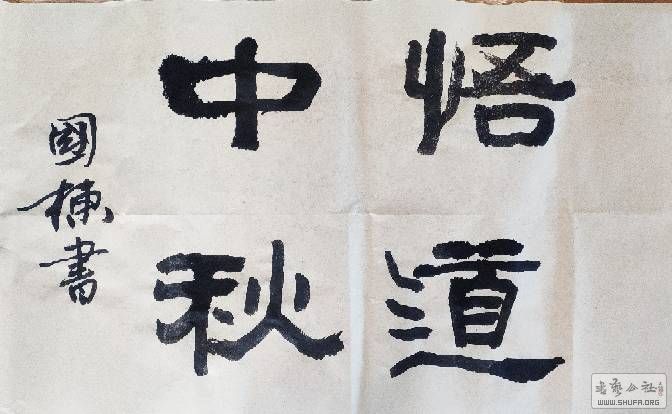 悟道
中秋
國棟書
书艺公社
WWW.SHUFA.ORG